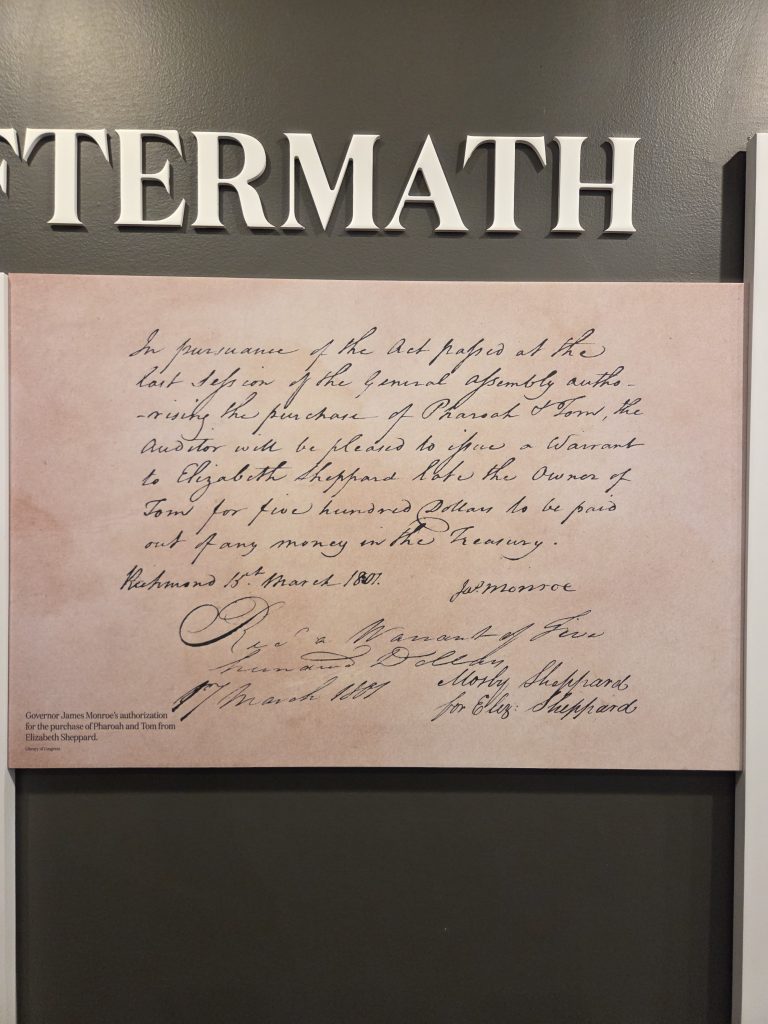 FTERMATH
In pursuance of the Act passed at the
last Session of the General Assembly autho-
-rising the purchase of Pharoah & Tom, the
Auditor will be pleased to issue a Warrant
to Elizabeth Sheppard late the Owner of
Tom for five hundred Dollars to be paid
out of any money in the Treasury.
Richmond 15.t March 1801. Jas. Monroe
Recd a Warrant of Five
hundred Dollars
17 March 1801 Mosby Sheppard
for Eliz: Sheppard
Governor James Monroe's authorization
for the purchase of Pharoah and Tom from
Elizabeth Sheppard.
Library of Congress